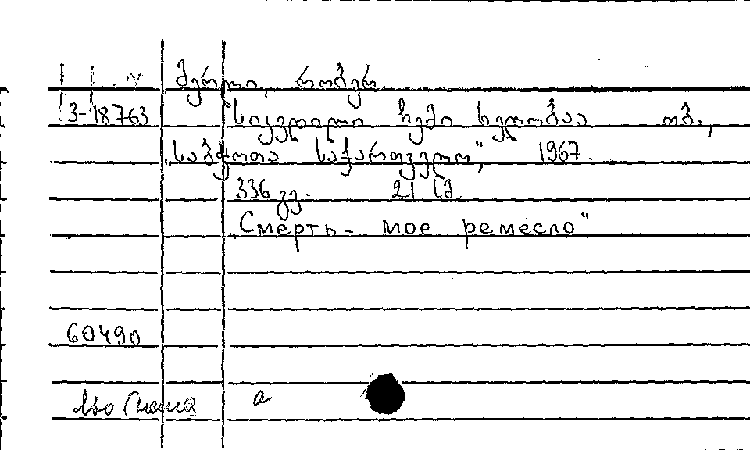 მერლი, რობერ
3-18763 "სიკვდილი ჩემი ხელობაა" თბ.,
"საბჭოთა საქართველო", 1967.
336 გვ. 21 სმ.
"Смерть - мое ремесло"
60490
а